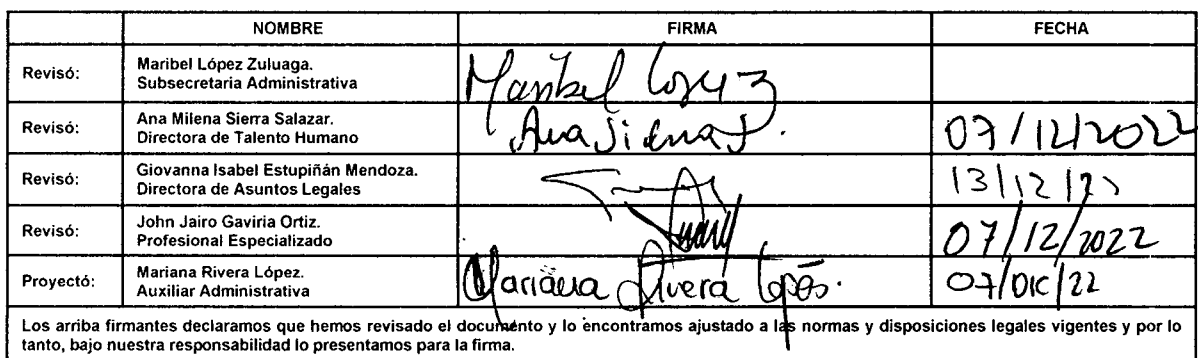 NOMBRE FIRMA FECHA
Revisó: Maribel López Zuluaga.
Subsecretaria Administrativa
Maribel López Z
Revisó: Ana Milena Sierra Salazar.
Directora de Talento Humano
Ana Sierra S. 07/12/2022
Revisó: Giovanna Isabel Estupiñán Mendoza.
Directora de Asuntos Legales
13/12/22
Revisó: John Jairo Gaviria Ortiz.
Profesional Especializado
07/12/2022
Proyectó: Mariana Rivera López.
Auxiliar Administrativa
Mariana Rivera López. 07/DIC/22
Los arriba firmantes declaramos que hemos revisado el documento y lo encontramos ajustado a las normas y disposiciones legales vigentes y por lo
tanto, bajo nuestra responsabilidad lo presentamos para la firma.